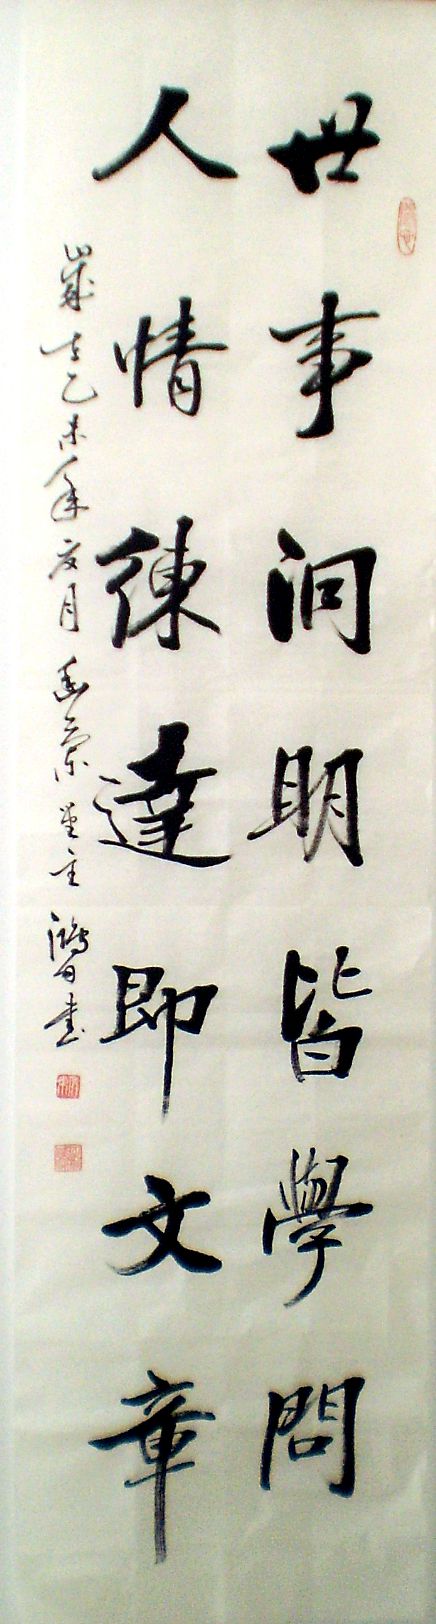 世事洞明皆學問
人情練達即文章
歲在乙未年夏月幽蘭堂主鴻日書